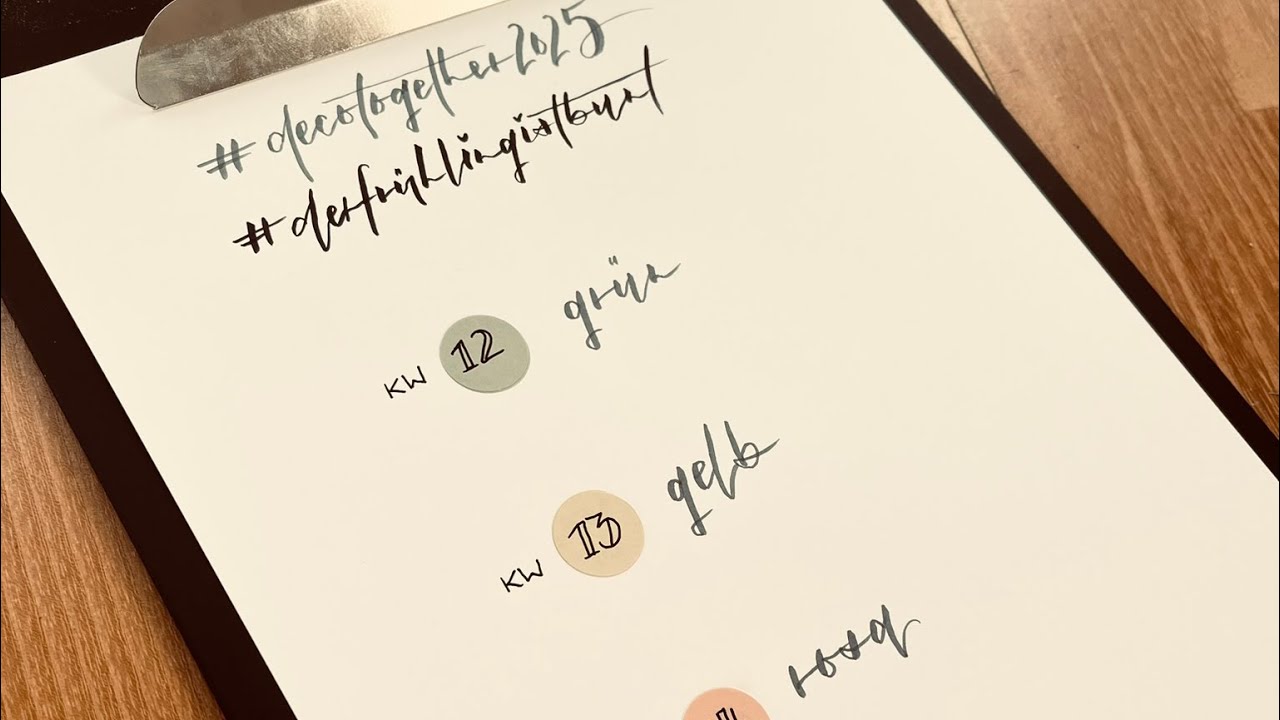 #decotogether2025
#derfrühlingistbunt
KW 12 grün
KW 13 gelb
rosa